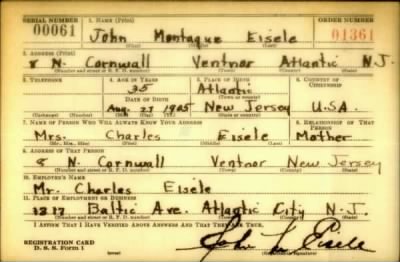 SERIAL NUMBER 1. NAME (Print) ORDER NUMBER
00061 John Montague Eisele 01361
(First) (Middle) (Last)
2. ADDRESS (Print)
8 N. Cornwall Ventnor Atlantic N.J.
(Number and street or R. F. D. number) (Town) (County) (State)
3. TELEPHONE 4. AGE IN YEARS 5. PLACE OF BIRTH 6. COUNTRY OF CITIZENSHIP
35 Atlantic
DATE OF BIRTH (Town or county)
Aug. 27 1905 New Jersey U.S.A.
(Exchange) (Number) (Mo.) (Day) (Yr.) (State or country)
7. NAME OF PERSON WHO WILL ALWAYS KNOW YOUR ADDRESS 8. RELATIONSHIP OF THAT PERSON
Mrs. Charles Eisele Mother
(Mr., Mrs., Miss) (First) (Middle) (Last)
9. ADDRESS OF THAT PERSON
8 N. Cornwall Ventnor New Jersey
(Number and street or R. F. D. number) (Town) (County) (State)
10. EMPLOYER'S NAME
Mr. Charles Eisele
11. PLACE OF EMPLOYMENT OR BUSINESS
1317 Baltic Ave. Atlantic City N.J.
(Number and street or R. F. D. number) (Town) (County) (State)
I AFFIRM THAT I HAVE VERIFIED ABOVE ANSWERS AND THAT THEY ARE TRUE.
REGISTRATION CARD
D. S. S. Form 1 John M. Eisele
(Registrant's signature)